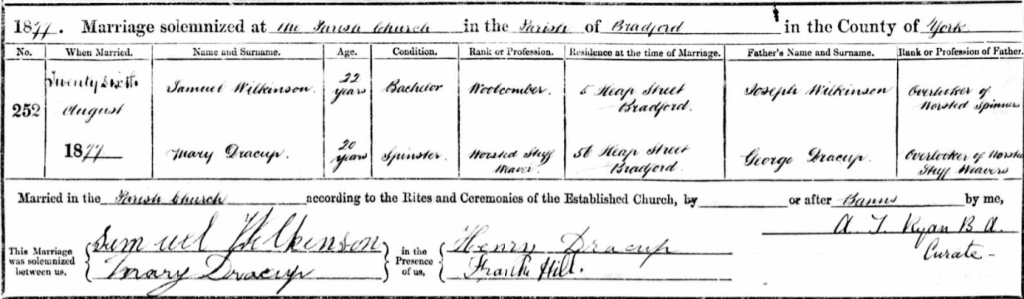 1877. Marriage solemnized at the Parish Church in the Parish of Bradford in the County of York
No. When Married. Name and Surname. Age. Condition. Rank or Profession. Residence at the time of Marriage. Father's Name and Surname. Rank or Profession of Father.
252 Twenty Sixth August 1877 Samuel Wilkinson. 22 years Bachelor Woolcomber. 5 Heap Street Bradford. Joseph Wilkinson Overlooker of Worsted Spinners
Mary Dracup. 20 years Spinster. Worsted Stuff Weaver. 56 Heap Street Bradford. George Dracup. Overlooker of Worsted Stuff Weavers
Married in the Parish Church according to the Rites and Ceremonies of the Established Church, by or after Banns by me,
A. T. Ryan B A.
Curate
This Marriage was solemnized between us, Samuel Wilkinson in the Presence of us, Henry Dracup
Mary Dracup Frank Hill.